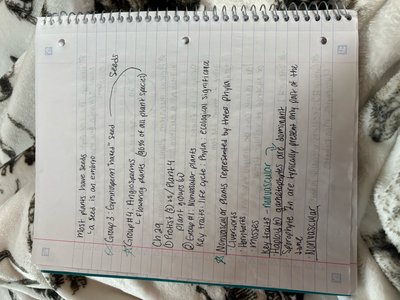 most plants have seeds
↳ a seed is an embryo
Group 3: Gymnosperms "naked" seed
Seeds
Group #4: Angiosperms
↳ Flowering plants (90% of all plant species)
Ch 29
① Protist (1) vs / Plant 4
plant groups (2)
② Group #1: Nonvascular plants
Key traits, life cycle, Phyla, ecological significance
Nonvascular plants represented by three phyla
Liverworts
Hornworts
mosses
Key traits nonvascular
Haploid (n) gametophytes are dominant
Sporophyte 2n are typically present only part of the
time
Nonvascular